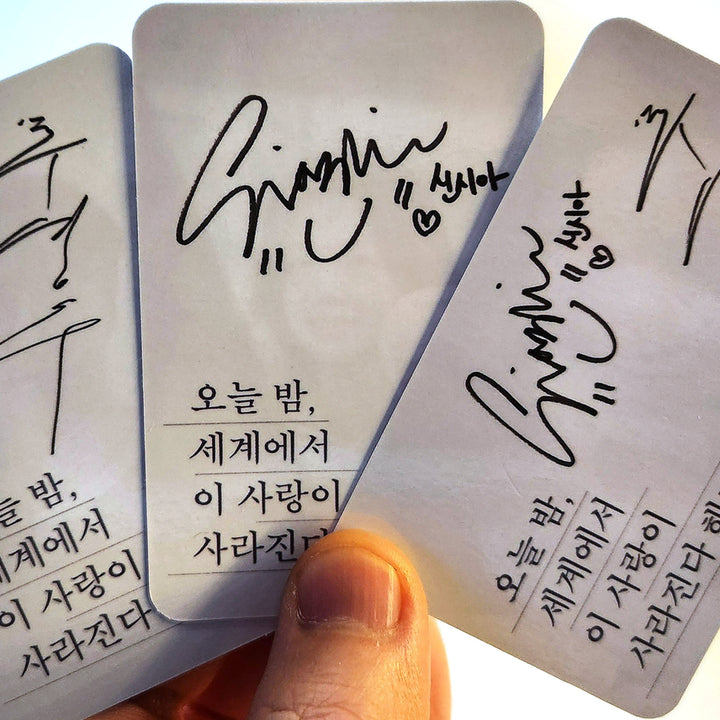 추
영
우
늘 밤,
세계에서
이 사랑이
사라진다
신시아
오늘 밤,
세계에서
이 사랑이
사라진다
추
신시아
오늘 밤,
세계에서
이 사랑이
사라진다 해